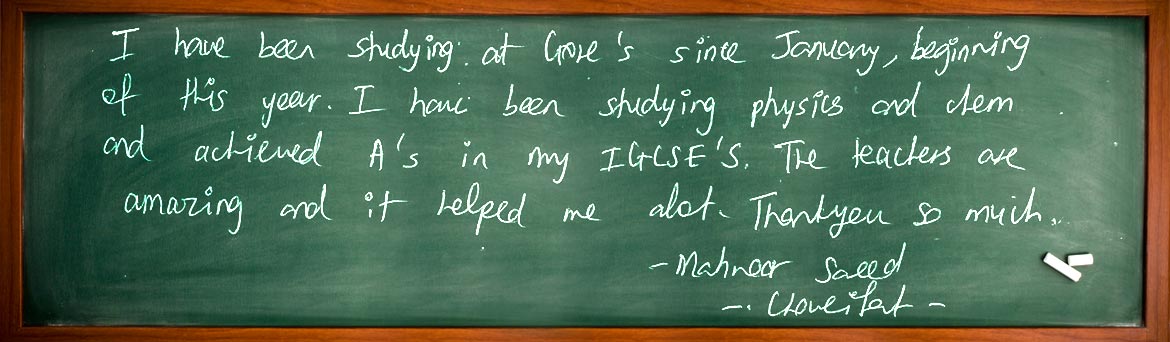 I have been studying at Grove's since January, beginning
of this year. I have been studying physics and chem
and achieved A's in my IGCSE'S. The teachers are
amazing and it helped me alot. Thankyou so much.
- Mahnoor Saeed
- Choueifat -